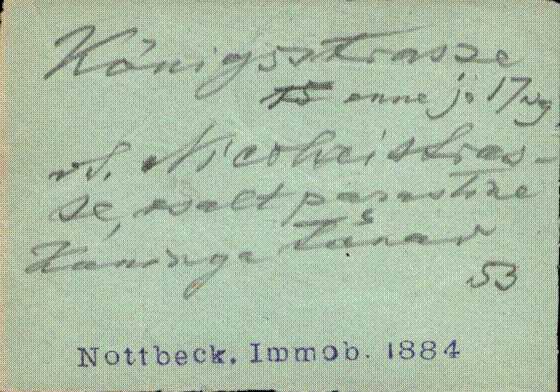 Königsstrasse
15 enne
vt. Nicolaistras-
se, osalt parastine
Kuninga tänav
53
Nottbeck, Immob. 1884